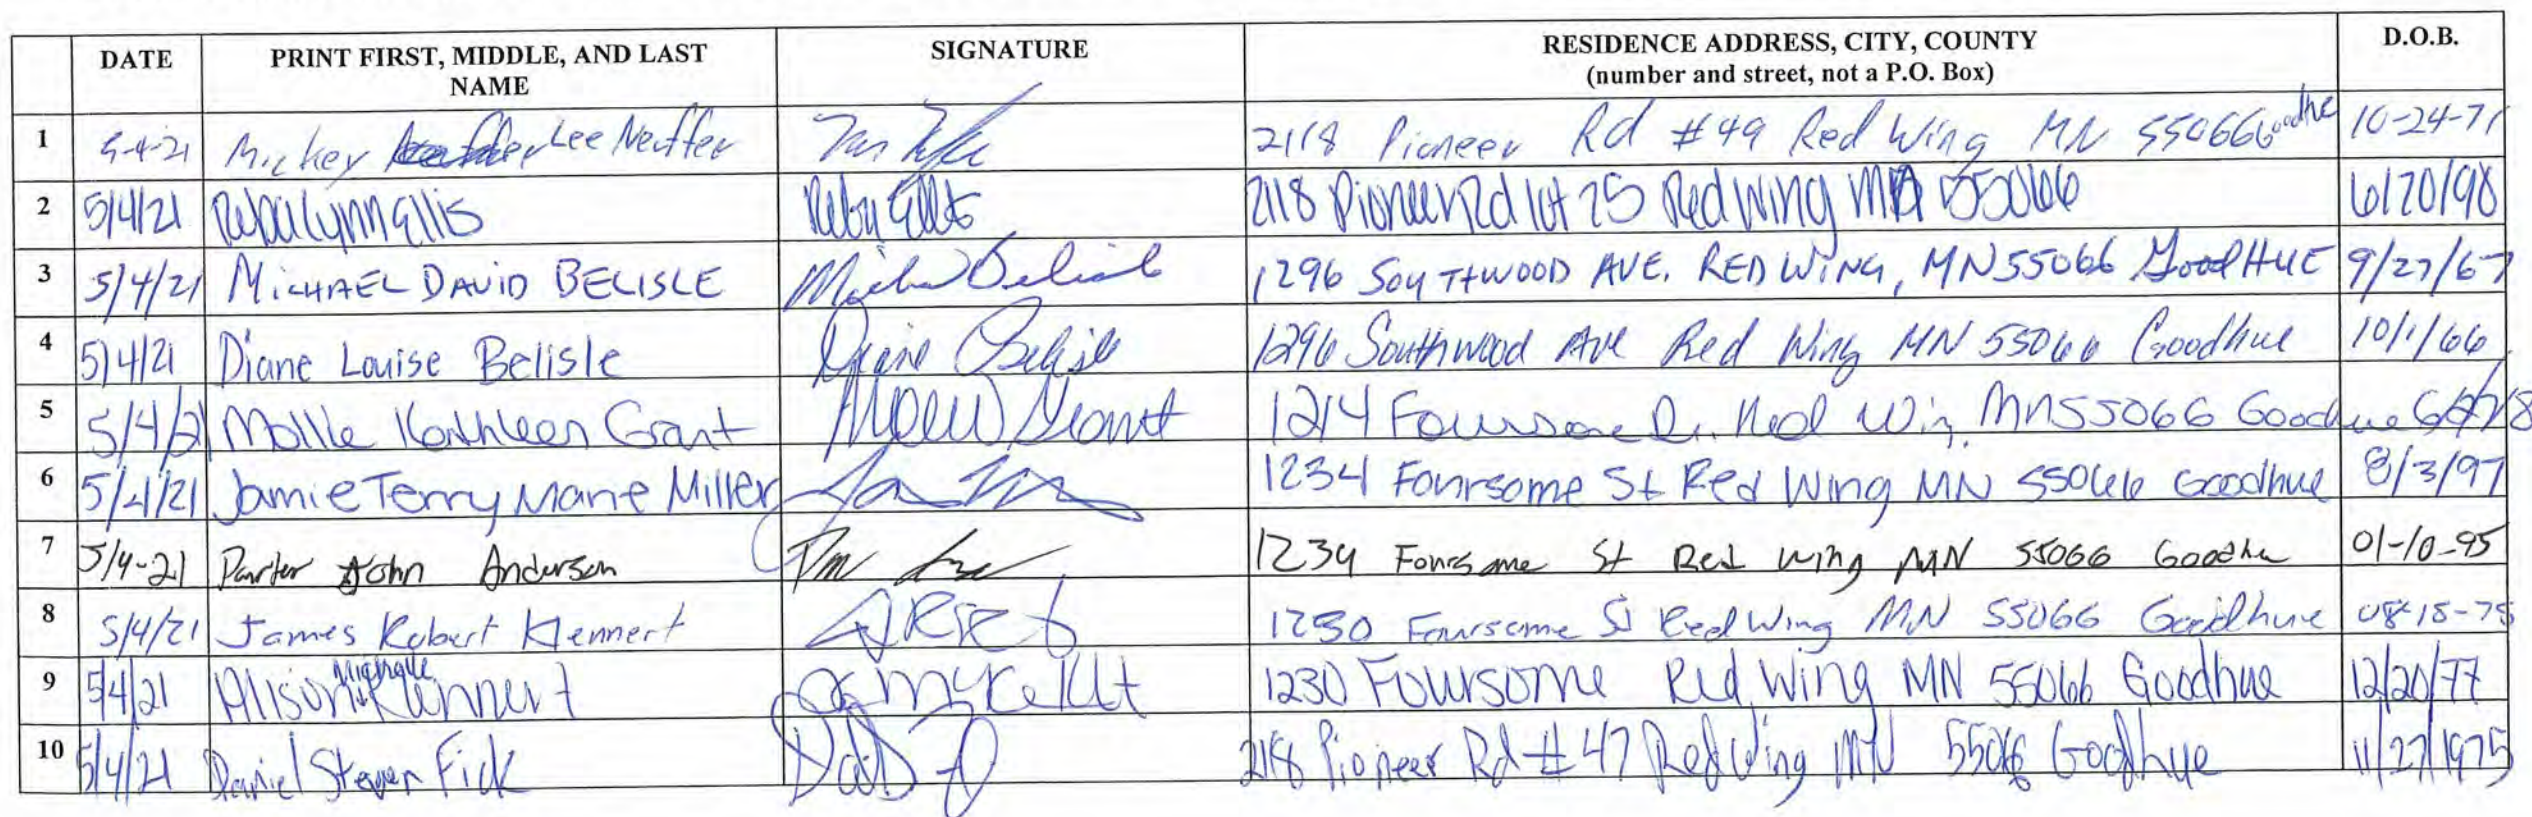 DATE PRINT FIRST, MIDDLE, AND LAST NAME SIGNATURE RESIDENCE ADDRESS, CITY, COUNTY (number and street, not a P.O. Box) D.O.B.
1 Mickey Lee Neuffer 2118 Pioneer Rd #49 Red Wing MN 55066 Goodhue 10-24-71
2 5/4/21 Reba Lynn Ellis Reba Ellis 2118 Pioneer Rd lot 25 Red Wing MN 55066 6/20/98
3 5/4/21 MICHAEL DAVID BELISLE Michael Belisle 1296 SOUTHWOOD AVE. RED WING, MN 55066 GoodHUE 9/27/67
4 5/4/21 Diane Louise Belisle Diane Belisle 1296 Southwood Ave Red Wing MN 55066 Goodhue 10/1/66
5 5/4/21 Mollie Kathleen Grant Grant 1214 Foursome Dr. Red Wing MN 55066 Goodhue
6 5/4/21 Jamie Terry Marie Miller 1234 Foursome St Red Wing MN 55066 Goodhue 8/3/97
7 5/4-21 Parker John Anderson 1234 Foursome St Red Wing MN 55066 Goodhue 01-10-95
8 5/4/21 James Robert Klennert 1230 Foursome St Red Wing MN 55066 Goodhue
9 5/4/21 Alison Klennert 1230 Foursome Red Wing MN 55066 Goodhue 12/20/77
10 5/4/21 Daniel Steven Fick 2118 Pioneer Rd #47 Red Wing MN 55066 Goodhue 11/27/1975